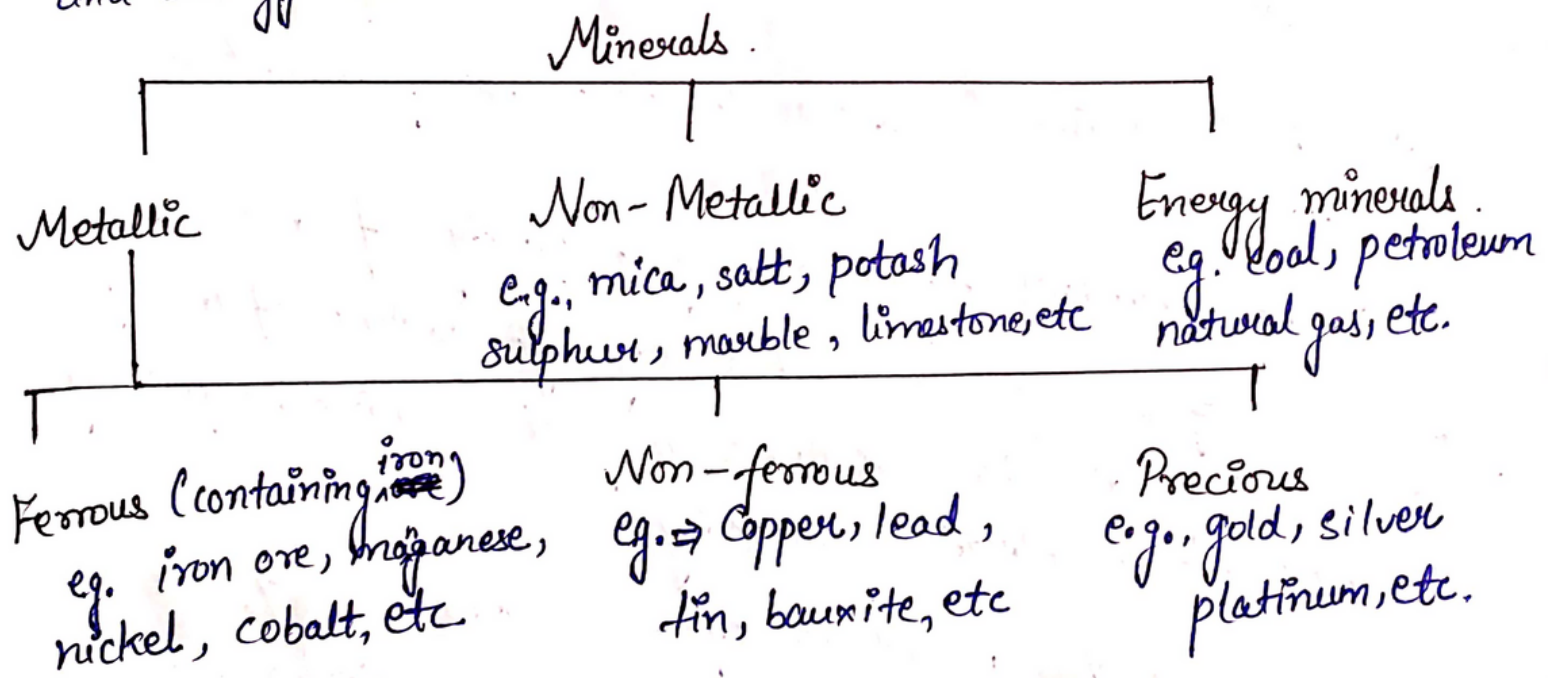 and
Minerals.
Metallic
Non-Metallic
e.g., mica, salt, potash
sulphur, marble, limestone, etc
Energy minerals.
eg. coal, petroleum
natural gas, etc.
Ferrous (containing iron)
eg. iron ore, manganese,
nickel, cobalt, etc
Non-ferrous
eg. ⇒ Copper, lead,
tin, bauxite, etc
Precious
e.g., gold, silver
platinum, etc.